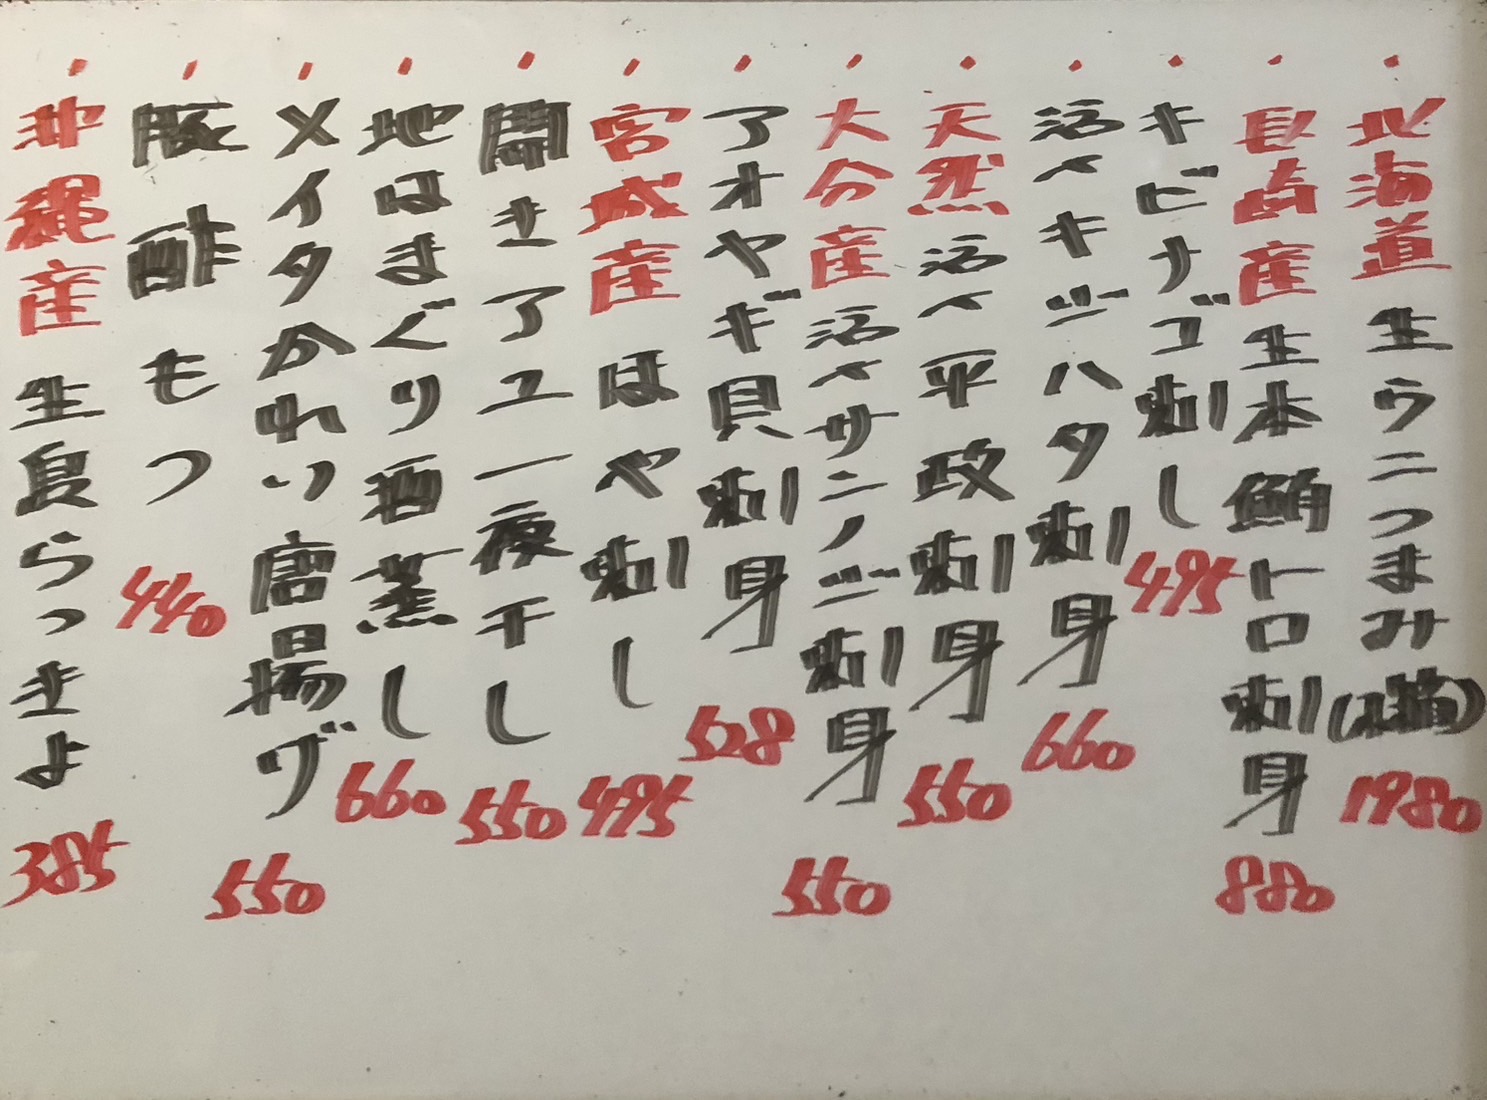 ・北海道生ウニつまみ 1980
・長崎産生本鮪トロ刺身 880
・キビナゴ刺し 495
・活〆キジハタ刺身 660
・天然活〆平政刺身 550
・大分産活〆サンノジ刺身 550
・アオヤギ貝刺身 528
・宮城産ほや刺し 495
・開きアユ一夜干し 550
・地はまぐり酒蒸し 660
・メイタかれい唐揚げ 550
・豚酢もつ 440
・沖縄産生島らっきょ 385